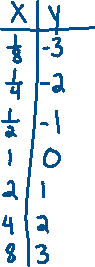 X Y
1/8 -3
1/4 -2
1/2 -1
1 0
2 1
4 2
8 3